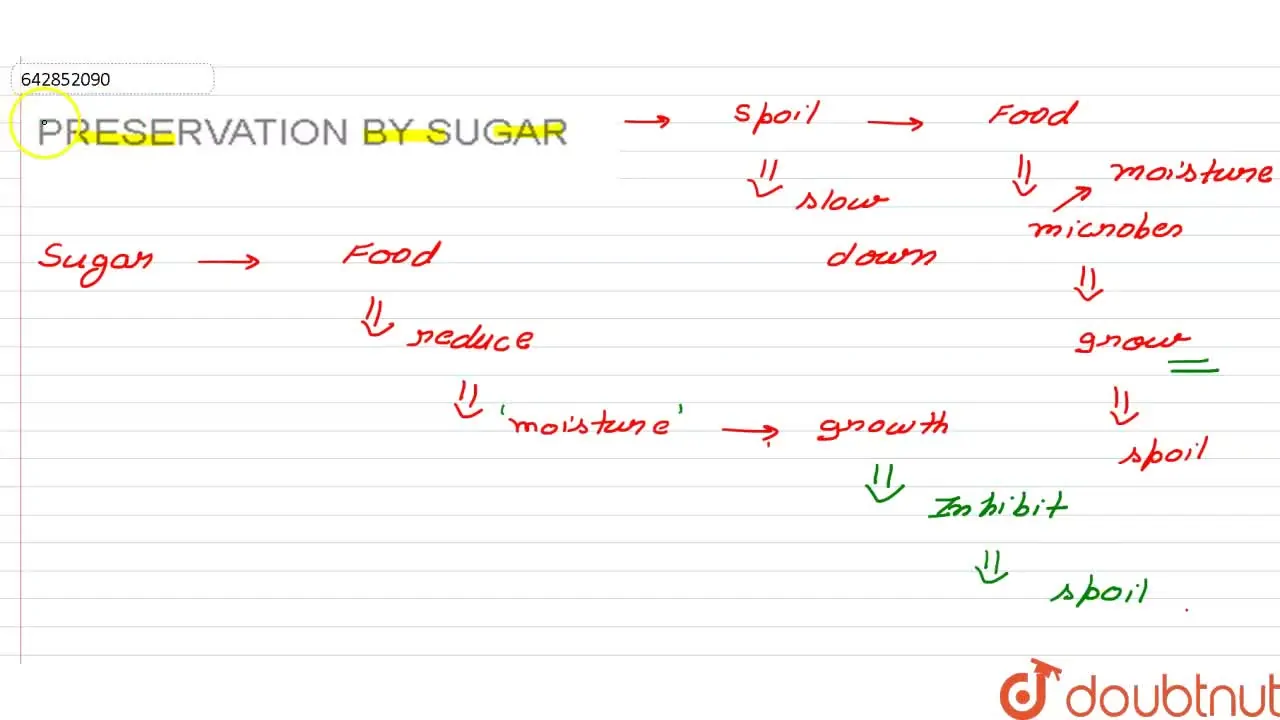 642852090
PRESERVATION BY SUGAR → Spoil → Food
slow down
moisture
microbes
grow
spoil
Sugar → Food
reduce
'moisture' → growth
Inhibit
spoil
doubtnut